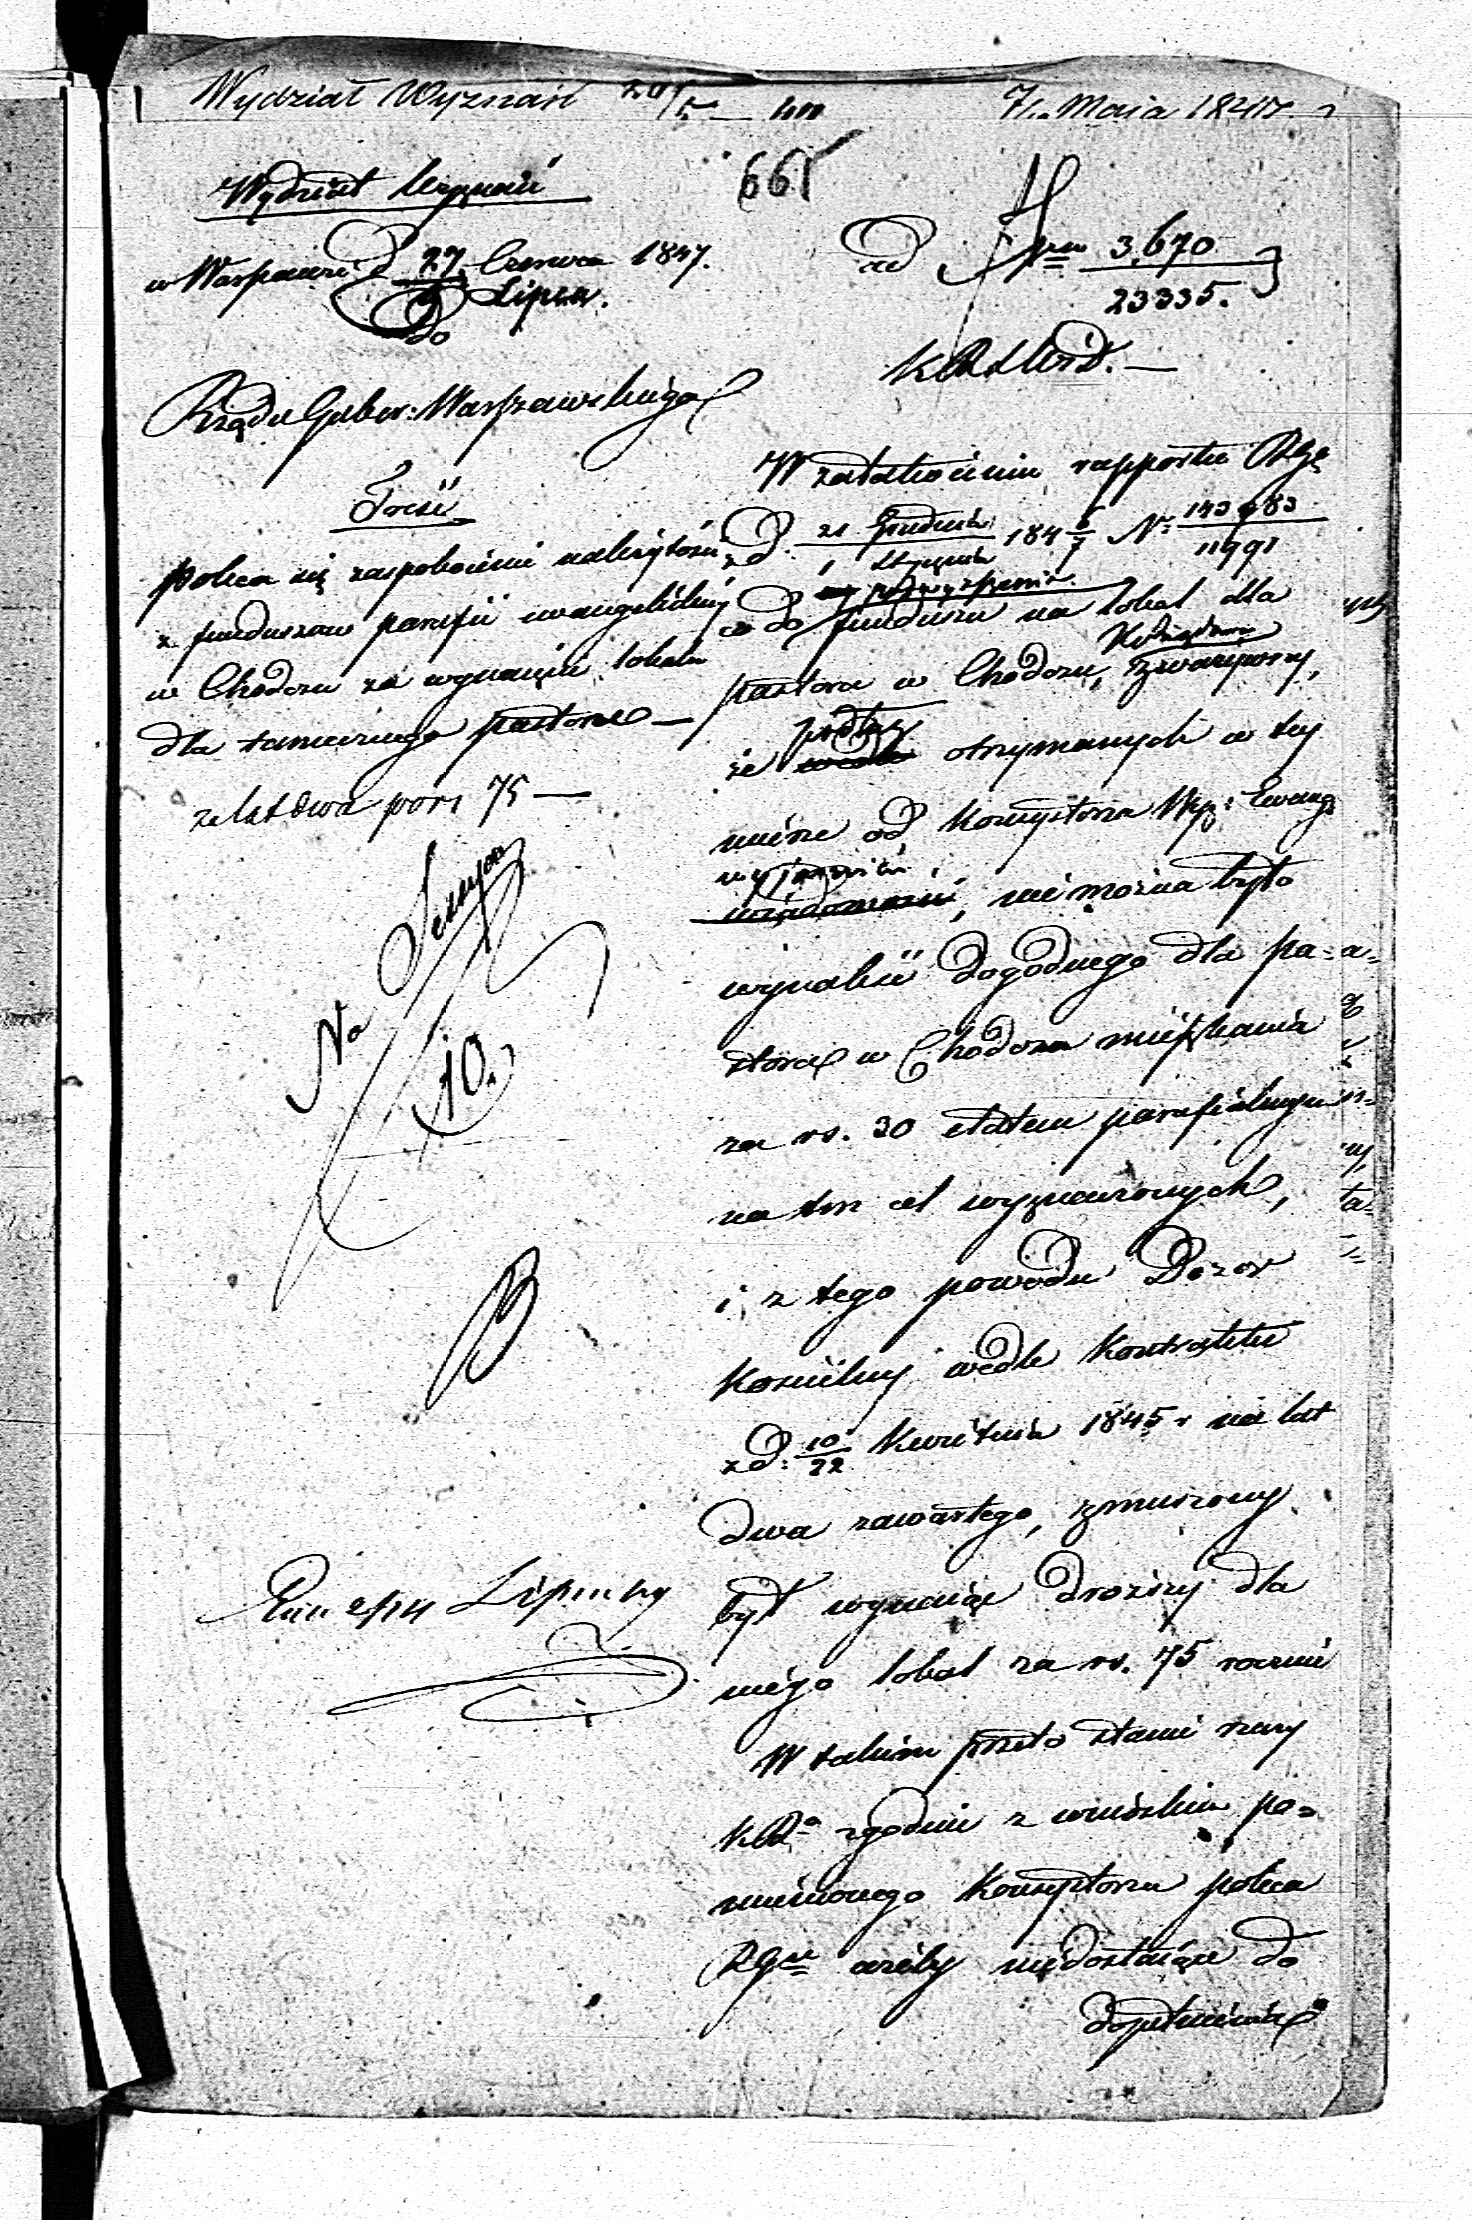 Wydział Wyznań
7 Maja 1847.
Wydział Wyznań
665
w Warszawie d 27 Czerwca 1847.
9 Lipca.
do
ad Nrm 3,670
23335.
Rządu Guber: Warszawskiego
K R S W i D. —
Treść
poleca się zaspokojenie należytości
z funduszów parafii ewangelickiej
w Chodczu za wynajęcie lokalu
dla tamecznego pastora —
za lat dwa po rs 75 —
No
10.
W załatwieniu rapportu RGo
z d. 21 Grudnia 1846/7 No 143983
2 Stycznia 11991
podwyższenia
co do funduszu na lokal dla
pastora w Chodczu,
zważywszy,
podług
że otrzymanych w tej
mierze od Konsystorza Wyz: Ewang:
wyjaśnień
wiadomości, nie można było
wynaleść dogodnego dla pa=
stora w Chodczu mieszkania
za rs. 30 etatem parafialnym
na ten cel wyznaczonych,
i z tego powodu Dozor
Kościelny wedle Kontraktu
z d: 10/22 Kwietnia 1845 r na lat
dwa zawartego, zmuszony
był wynająć droższy dla
niego lokal za rs. 75 rocznie
W takim przeto stanie rzeczy
KRa zgodnie z wnioskiem po=
mienionego Konsystorza poleca
RGmu ażeby niedostające do
dopełnienia